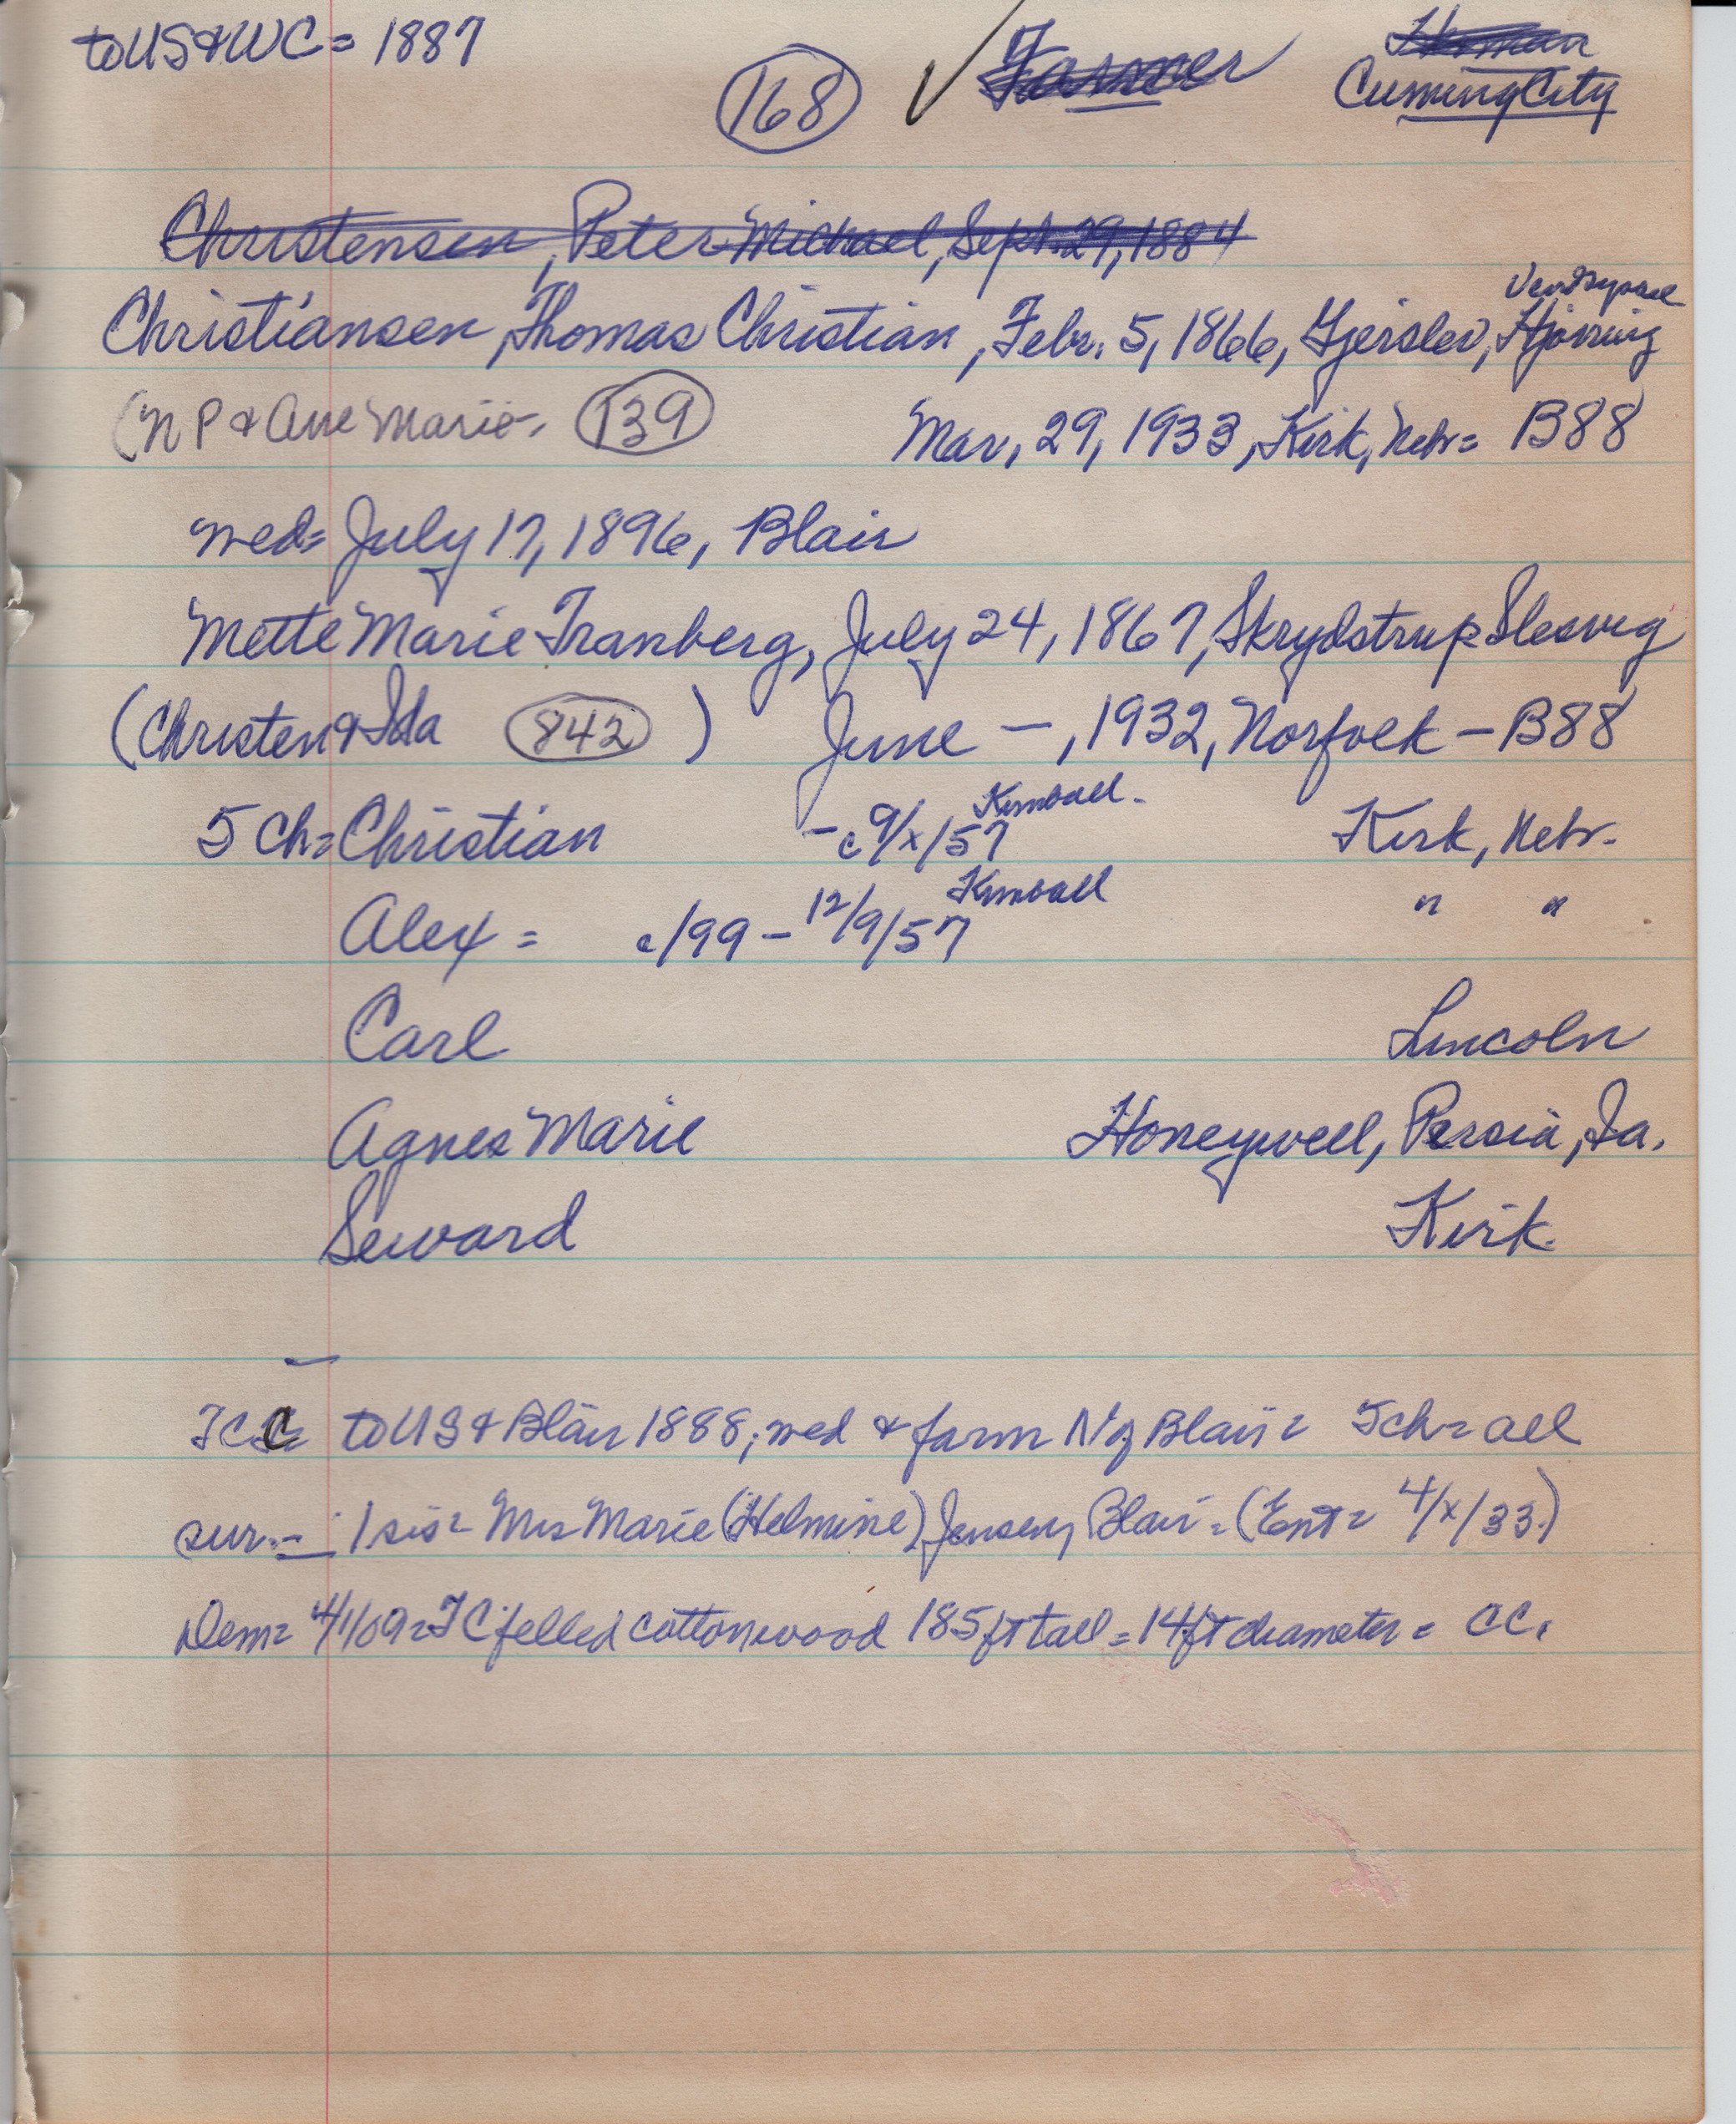 to US & WC = 1887
168 Farmer Herman
Cuming City
Christensen, Peter Michael, Sept. 29, 1884
Vendsyssel
Christiansen, Thomas Christian, Febr. 5, 1866, Gjerslev, Hjørring
(N P & Ane Marie, 139 Mar, 29, 1933, Kirk, Nebr = B88
wed = July 17, 1896, Blair
Mette Marie Tranberg, July 24, 1867, Skrydstrup Slesvig
(Christen & Ida 842 ) June —, 1932, Norfolk – B88
5 Ch = Christian – c 9/x/57 Kimball. Kirk, Nebr.
Alex = c/99 – 12/9/57 Kimball " "
Carl Lincoln
Agnes Marie Honeywell, Persia, Ia.
Seward Kirk.
TCC = to US & Blair 1888; wed & farm N of Blair = 5 ch = all
sur. – 1 sis = Mrs Marie (Helmine) Jensen, Blair = (Ent = 4/x/33.)
Dem = 4/1/09 = TC felled cottonwood 185 ft tall = 14 ft diameter = CC.